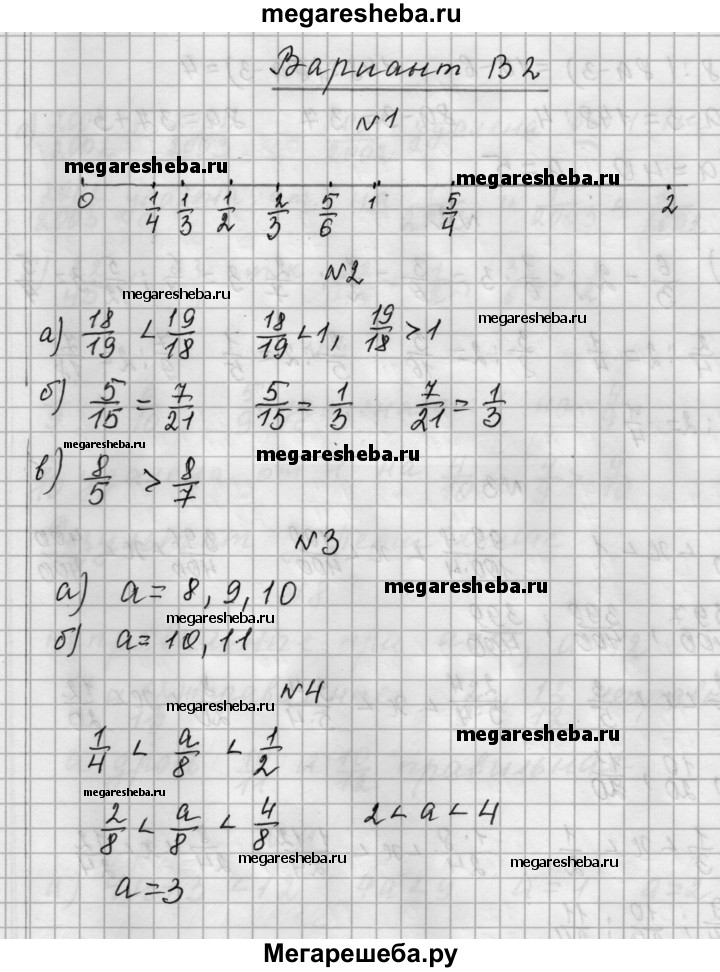 megaresheba.ru
Вариант В2
№1
megaresheba.ru megaresheba.ru
0 1/4 1/3 1/2 2/3 5/6 1 5/4 2
№2
megaresheba.ru megaresheba.ru
а) 18/19 < 19/18 18/19 < 1, 19/18 > 1
б) 5/15 = 7/21 5/15 = 1/3 7/21 = 1/3
megaresheba.ru megaresheba.ru
в) 8/5 > 8/7
№3
megaresheba.ru
а) a = 8, 9, 10
megaresheba.ru
б) a = 10, 11
№4
megaresheba.ru megaresheba.ru
1/4 < a/8 < 1/2
megaresheba.ru
2/8 < a/8 < 4/8 2 < a < 4
megaresheba.ru megaresheba.ru
a = 3
Мегарешеба.ру